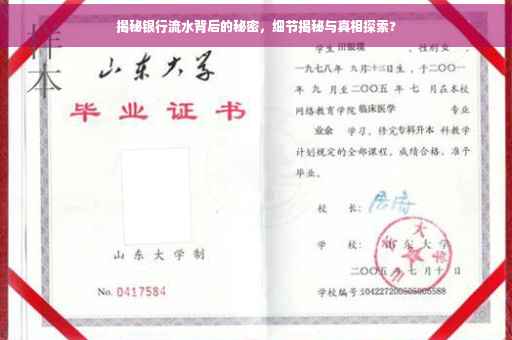 揭秘银行流水背后的秘密，细节揭秘与真相探索？
样本
山东大学
毕业证书
山东大学制
No. 0417584
学生 田银環 ，性别 女 ，
一九七八年 九月十二日生，于二〇〇一
年 九 月至二〇〇五 年 七 月在本校
网络教育学院 临床医学 专业
业余 学习，修完专科升本 科教学
计划规定的全部课程，成绩合格，准予
毕业。
校 长：
学 校：山东大学
二〇〇五 年 七 月 十 日
学校编号：104227200505005588